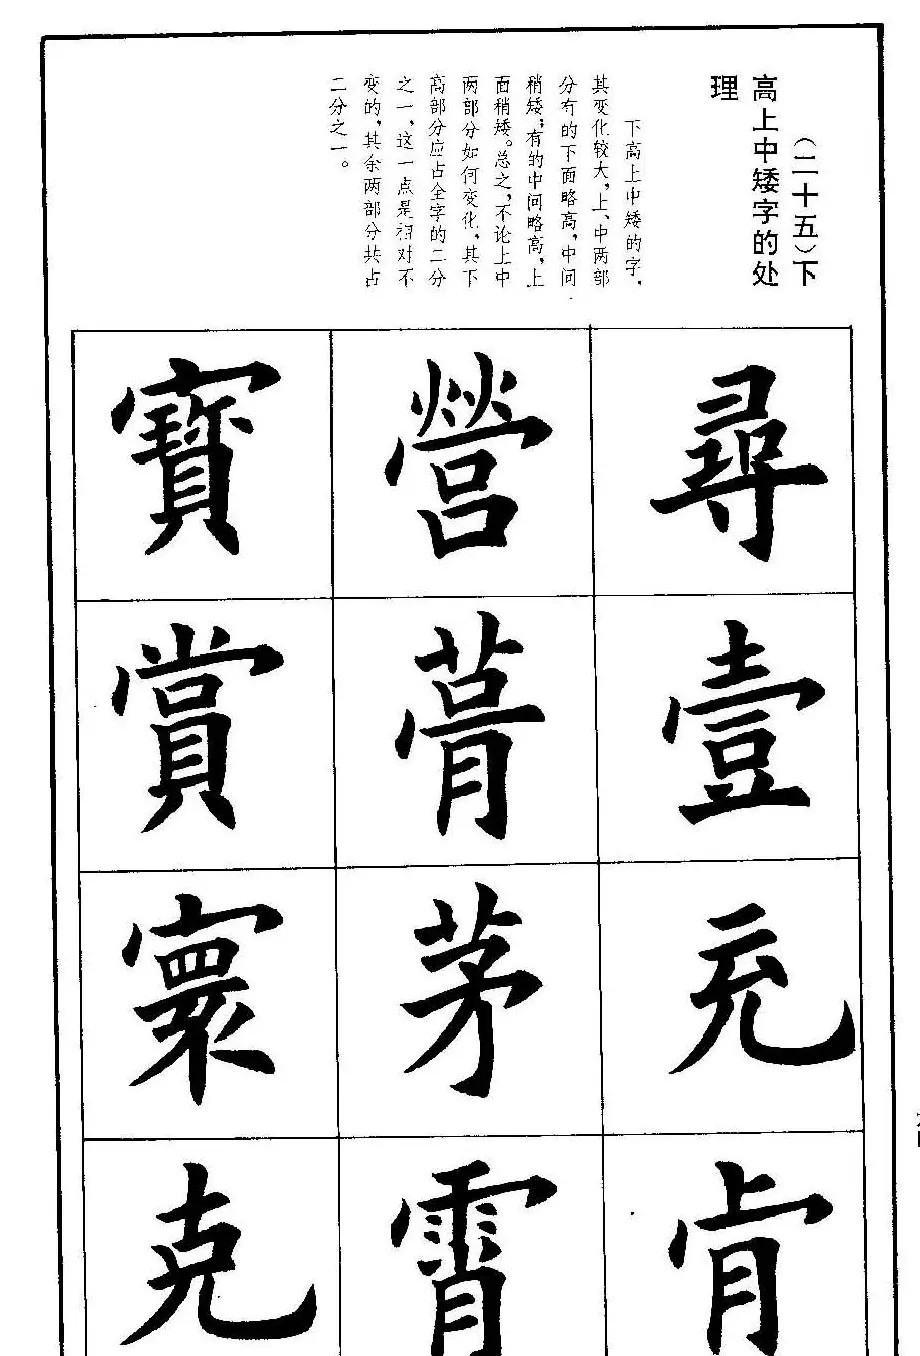 （二十五）下
高上中矮字的处
理
下高上中矮的字，
其变化较大，上、中两部
分有的下面略高，中间
稍矮；有的中间略高，上
面稍矮。总之，不论上中
两部分如何变化，其下
高部分应占全字的二分
之一，这一点是相对不
变的，其余两部分共占
二分之一。
尋
壹
充
肯
營
薵
茅
霄
寳
賞
寰
克